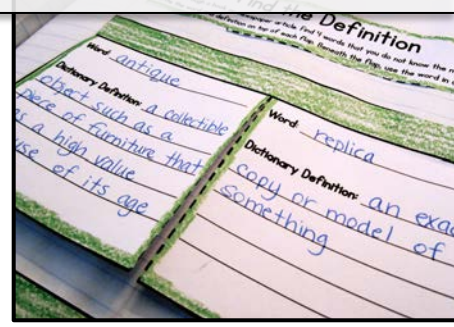 Find the Definition
newspaper article find 4 words that you do not know the
definition on top of each flap. Beneath the flap, use the word in
Word: antique
Dictionary Definition: a collectible
object such as a
piece of furniture that
a high value
of its age
Word: replica
Dictionary Definition: an
copy or model of
something